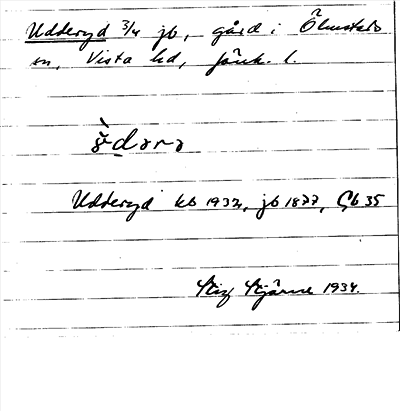 Udderyd 3/4 jb, gård i Ölmstads
sn, Vista hd, Jönk. l.
Udderyd kb 1932, jb 1877, Gb 35
Stig Stjärne 1934.